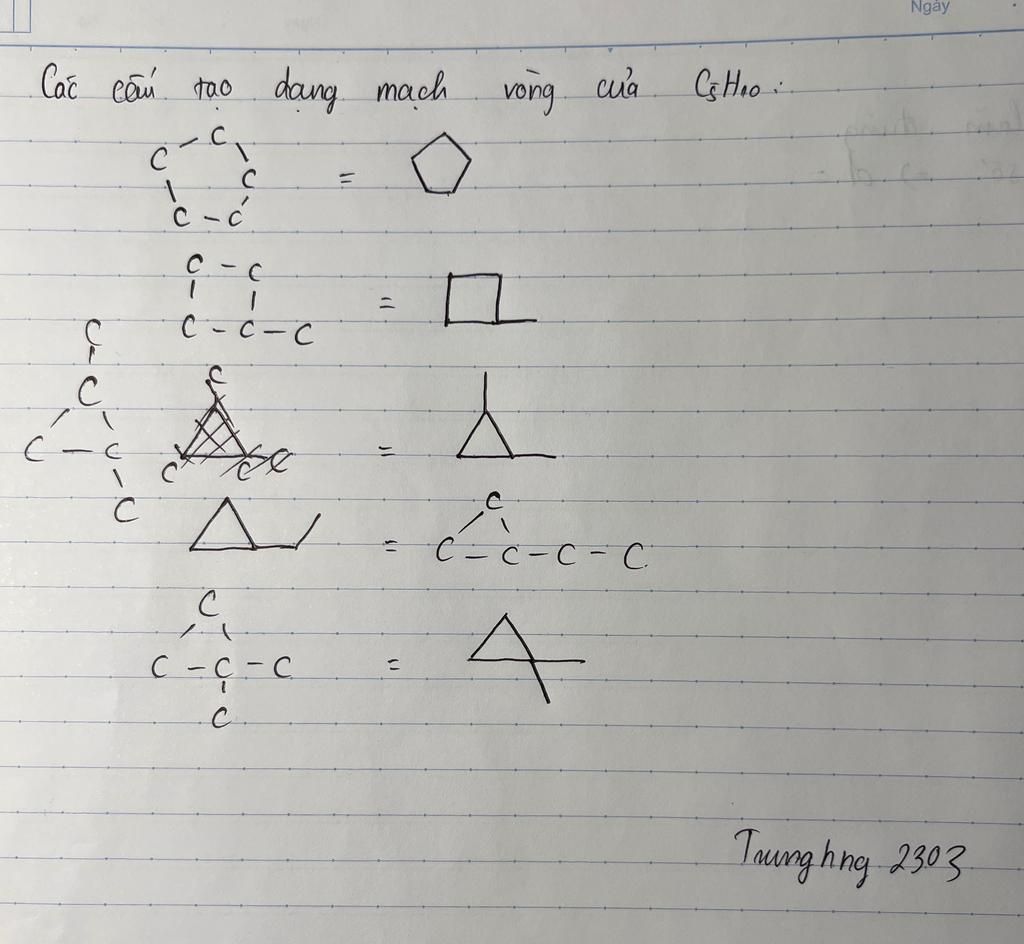 Ngày
Các cấu tạo dạng mạch vòng của C5H10:
C - C
C C
C - C = 
C - C
C - C - C =
C
C C
C - C C C C =
C
C
= C - C - C - C
C
C - C - C =
C
Trunghng 2303